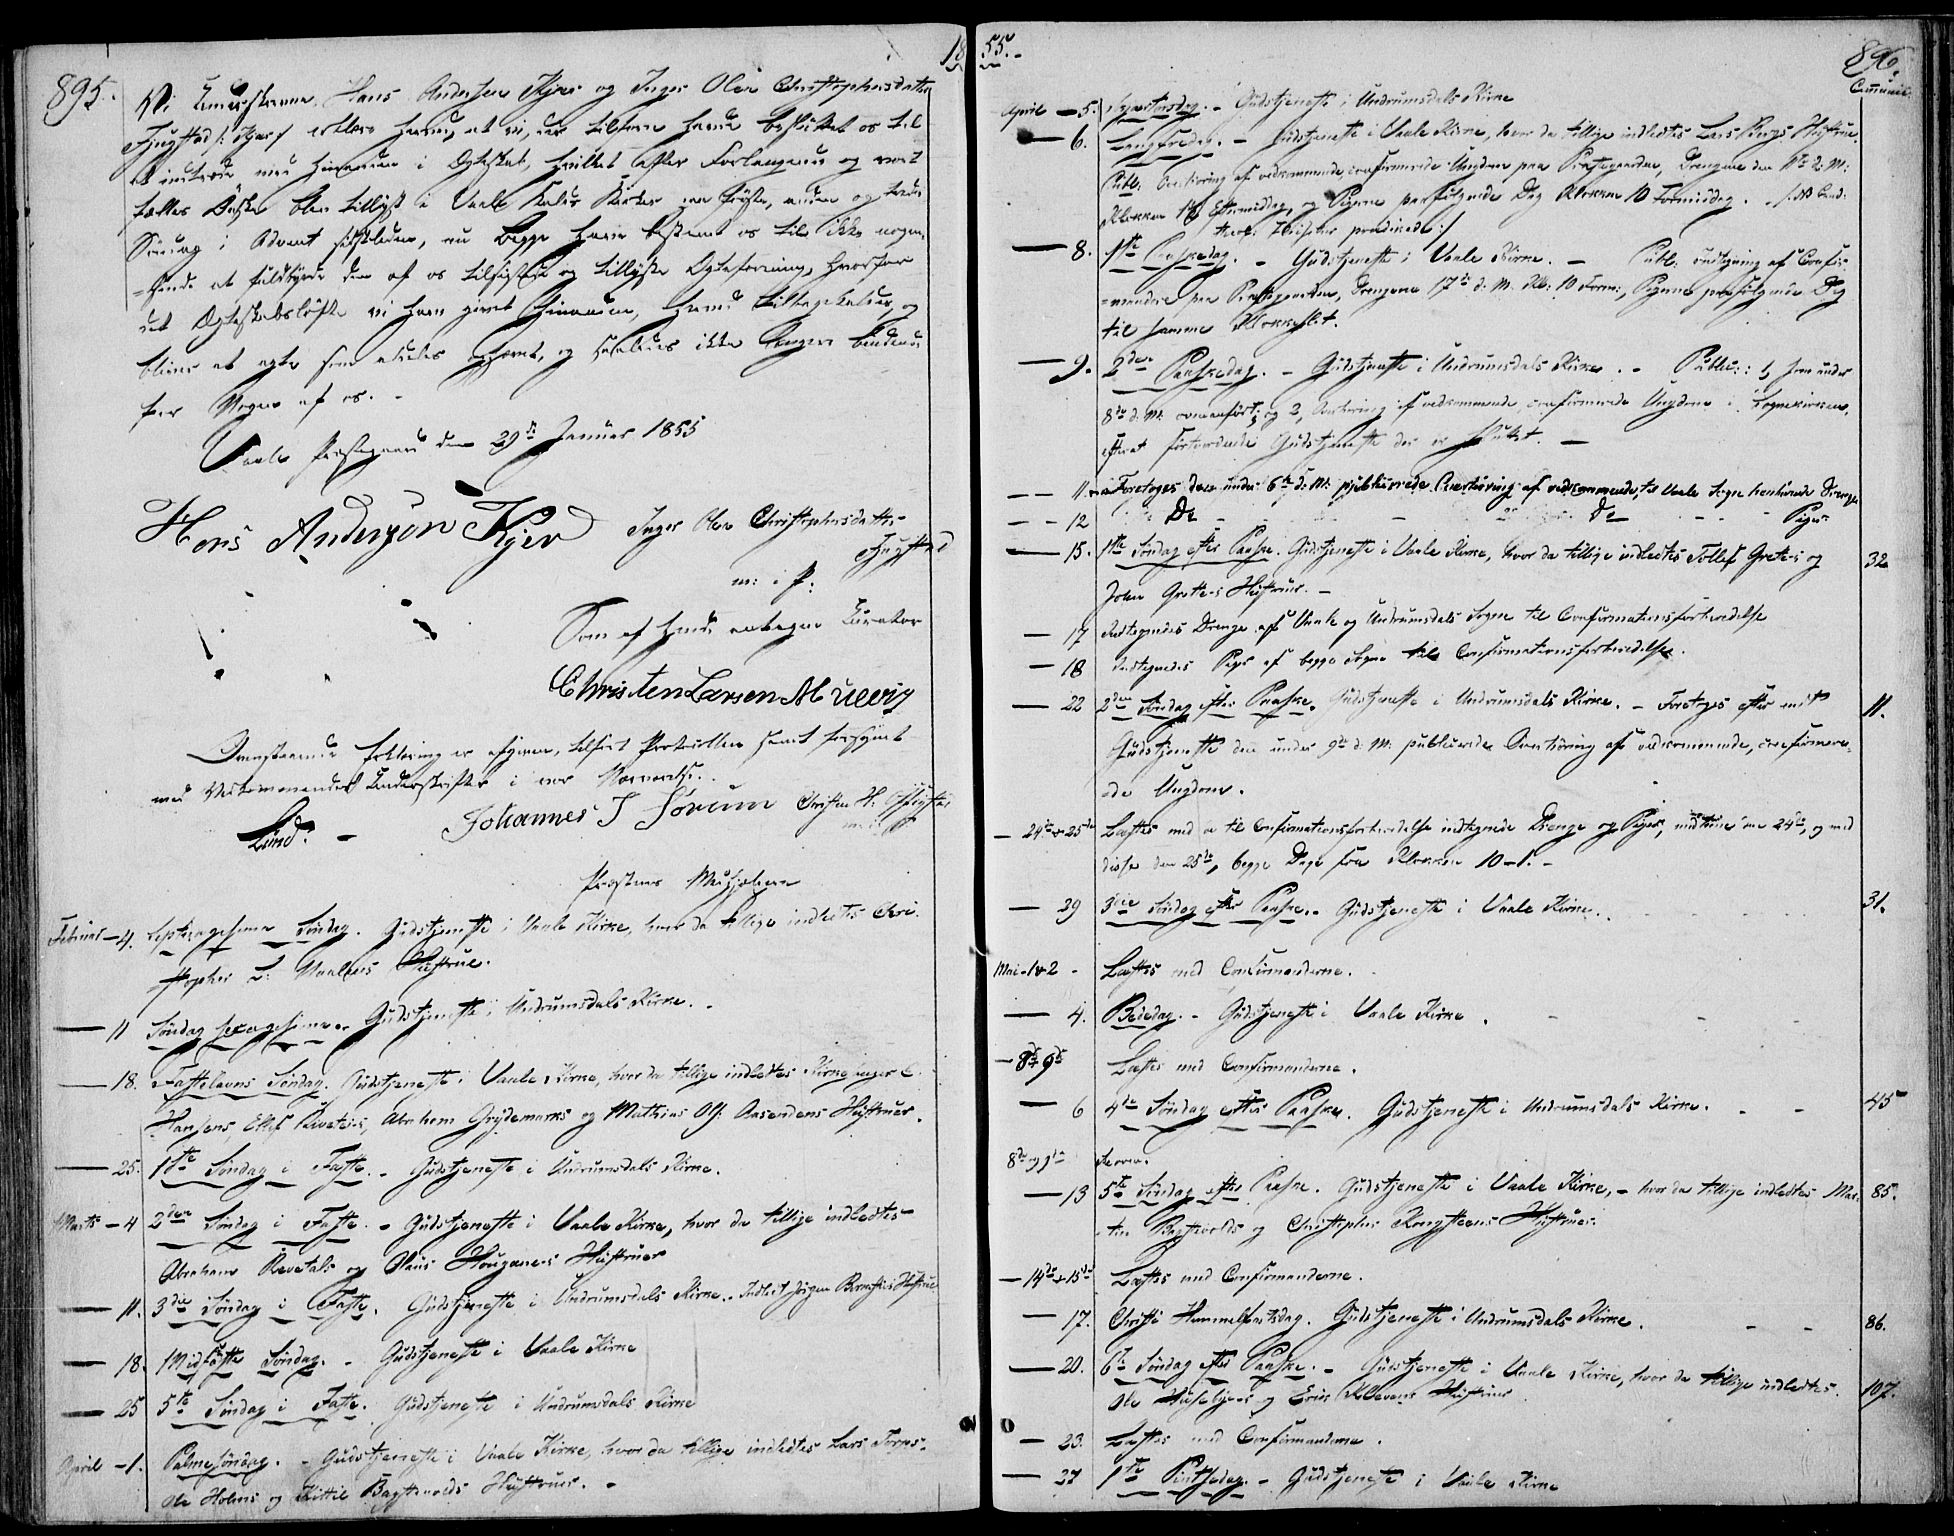 895.
18
Vi Underskrevne Hans Andersen Kjær og Inger Olea Christophersdatter
erklære herved, at vi, der tilforn havde besluttet os til
at indtræde med hinanden i Ægteskab, hvilket efter Forlangende og vort
blev tillyst i Vaale Kirke første, anden og tredie
Søndag i Advent sidstleden, nu begge have bestemt os til ikke
at fuldbyrde den af os tilsigtede og tillyste Ægteforening, hvorfor
det Ægteskabsløfte vi have givet hinanden, herved tilbagekaldes, og
bliver at agte som aldeles ophævet, og saaledes ikke længere bindende
for Nogen af os. -
Vaale Præstegaard den 29de Januar 1855
Hans Andersson Kjer Inger Olea Christophersdatter
m: i P:
Som af hende antagne Curator
Christen Larsen Mullvig
Ovenstaaende Erklæring er afgiven, tilført Protocollen samt forsynet
med Vedkommendes Underskrifter i vor Nærværelse.
Lund. - Johannes J Sørum Christen H:
Præstens Medhjelpere
Februar - 4. Septuagesima Søndag. Gudstjeneste i Vaale Kirke, hvor da tillige indledtes Chri-
stopher L: Hustrue.
— 11 Søndag sexagesima. Gudstjeneste i Undrumsdals Kirke. -
— 18. Fastelavns Søndag. Gudstjeneste i Vaale Kirke, hvor da tillige indledtes
Hansens, Abraham Grydemarks og Mathias Ol: Aasendens Hustruer.
— 25. 1ste Søndag i Faste. - Gudstjeneste i Undrumsdals Kirke.
Marts - 4 2den Søndag i Faste. - Gudstjeneste i Vaale Kirke, hvor da tillige indledtes
Abraham Revetals og Hans Hougane-s Hustruer
— 11. 3die Søndag i Faste. Gudstjeneste i Undrumsdals Kirke. - Indledt Jørgen Hustrue
— 18. Midfaste Søndag. - Gudstjeneste i Vaale Kirke
— 25 5te Søndag i Faste. Gudstjeneste i Undrumsdals Kirke
April - 1. Palmesøndag. - Gudstjeneste i Vaale Kirke, hvor da tillige indledtes Lars
Ole Holms og Kittil Hustruer. -
55.-
896.
April - 5. Skjærtorsdag. - Gudstjeneste i Undrumsdals Kirke
— 6. Langfredag. - Gudstjeneste i Vaale Kirke, hvor da tillige indledtes Lars Bergs Hustrue.
Publ: Overhøring af vedkommende, confirmerede Ungdom paa Præstegaarden, Drengene den 11te d: M:
Klokken Eftermiddag, og Pigerne paafølgende Dag Klokken 10 Formiddag.
prædikede:/
— 8. 1ste Paaskedag. - Gudstjeneste i Vaale Kirke. - Publ: indtegning af Confir-
-mander paa Præstegaarden, Drengene 17de d: M: Kl: 10 Form:, Pigerne paafølgende Dag
til samme Klokkeslet.
— 9. 2den Paaskedag. - Gudstjeneste i Undrumsdals Kirke. - Public: 1, som under
8de d: M: ovenanført; og 2, Overhøring af vedkommende, confirmerede Ungdom i Sognekirken,
efterat Gudstjeneste der er sluttet. -
— 11. Foretoges den under 6te d: M: publicerede Overhøring af vedkommende, til Vaale Sogn henhørende Drenge
— 12 Do - - - Do - - Piger
— 15. 1ste Søndag efter Paaske. Gudstjeneste i Vaale Kirke, hvor da tillige indledtes Tollef Grette-s og 32
John Grette-s Hustruer. -
— 17 Indtegnedes Drenge af Vaale og Undrumsdals Sogne til Confirmationsforberedelse
— 18 Indtegnedes Piger af begge Sogne til Confirmationsforberedelse.
— 22 2den Søndag efter Paaske. Gudstjeneste i Undrumsdals Kirke. - Foretoges efter endt 11.
Gudstjeneste den under 9de d: M: publicerede Overhøring af vedkommende, confirmere-
de Ungdom.
— 24de & 25de Læstes med de til Confirmationsforberedelse indtegnede Drenge og Piger, med hine den 24de, og med
disse den 25de, begge Dage fra Klokken 10-1. -
— 29 3die Søndag efter Paaske. - Gudstjeneste i Vaale Kirke. 31.
Mai - 1 & 2 - Læstes med Confirmanderne.
— 4. Bededag. - Gudstjeneste i Vaale Kirke.
— 8de & 9de Læstes med Confirmanderne.
— 6 4de Søndag efter Paaske. Gudstjeneste i Undrumsdals Kirke. - - 45
8de og 9de
— 13 5te Søndag efter Paaske. Gudstjeneste i Vaale Kirke, - hvor da tillige indledtes Mar- 85.
og Christopher Hustruer.
— 14de & 15de Læstes med Confirmanderne.
— 17. Christi Himmelfartsdag. Gudstjeneste i Undrumsdals Kirke. - - 86.
— 20. 6te Søndag efter Paaske. - Gudstjeneste i Vaale Kirke, hvor da tillige indledtes 107.
Ole og Hustruer
— 23. Læstes med Confirmanderne.
— 27 1ste Pintsedag. - Gudstjeneste i Vaale Kirke